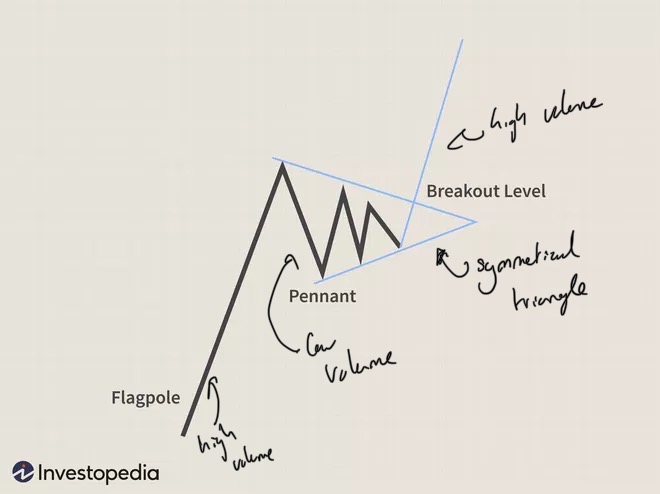 high volume
Breakout Level
symmetrical
triangle
Pennant
low
volume
Flagpole
high
volume
Investopedia